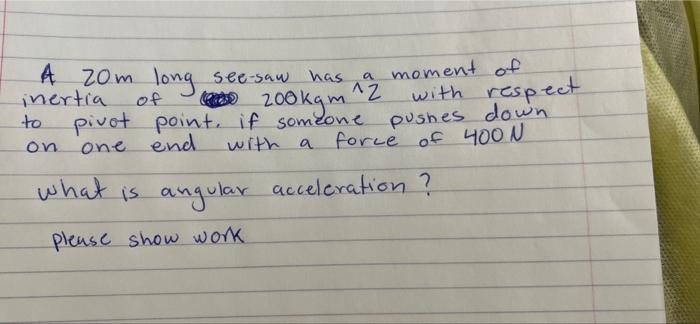 A 20m long see-saw has a moment of
inertia of 200kgm^2 with respect
to pivot point. if someone pushes down
on one end with a force of 400N
what is angular acceleration?
please show work